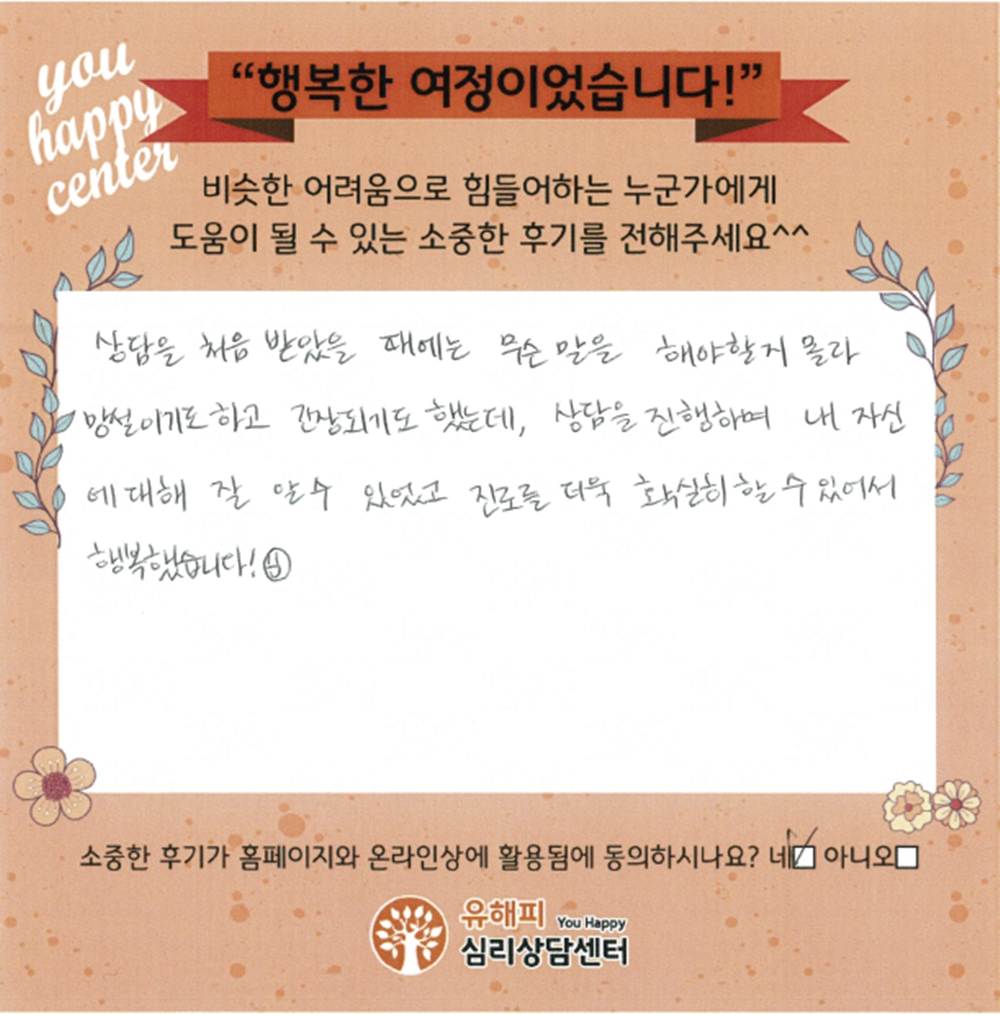 you
happy
center
“행복한 여정이었습니다!”
비슷한 어려움으로 힘들어하는 누군가에게
도움이 될 수 있는 소중한 후기를 전해주세요^^
상담을 처음 받았을 때에는 무슨 말을 해야할지 몰라
망설이기도 하고 긴장되기도 했는데, 상담을 진행하며 내 자신
에 대해 잘 알 수 있었고 진로를 더욱 확실히 할 수 있어서
행복했습니다!
소중한 후기가 홈페이지와 온라인상에 활용됨에 동의하시나요? 네☑ 아니오☐
유해피 You Happy
심리상담센터